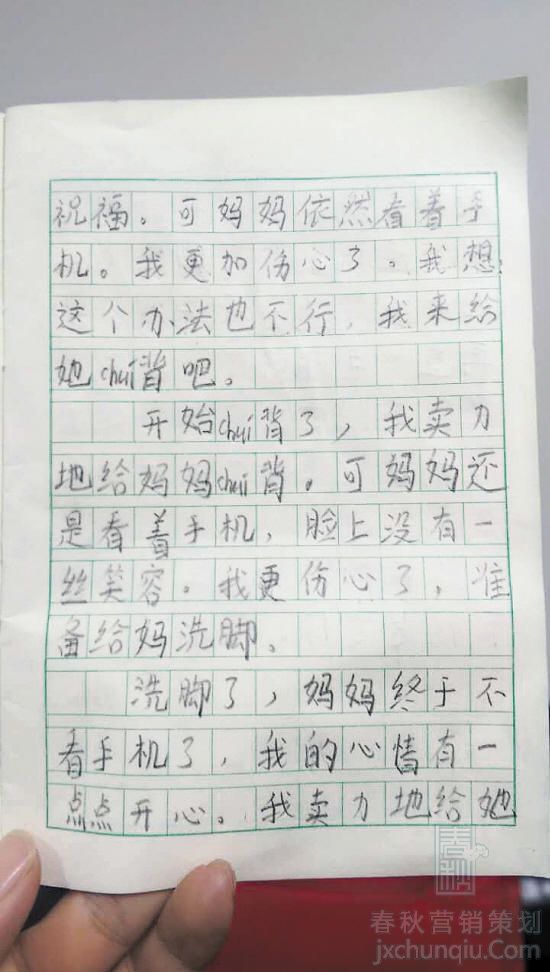 祝福。可妈妈依然看着手
机。我更加伤心了。我想:
这个办法也不行，我来给
她chuí背吧。
开始chuí背了，我卖力
地给妈妈chuí背。可妈妈还
是看着手机，脸上没有一
丝笑容。我更伤心了，准
备给妈洗脚。
洗脚了，妈妈终于不
看手机了，我的心情有一
点点开心。我卖力地给她
春秋营销策划
jxchunqiu.com